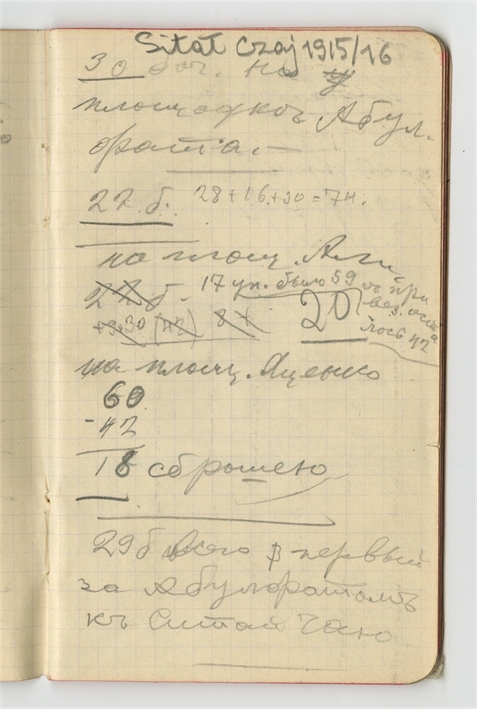 Sitał Czaj 1915/16
30 боч. на
площадкѣ Абул-
фата.
22 б. 28+16+30=74.
на площ. Али
22 б. 17 уп. было 59
20
лось 42
на площ. Яценко
60
-42
18 сброшено
29 б всего в первый
за Абулфатомъ
къ Ситал Чаю